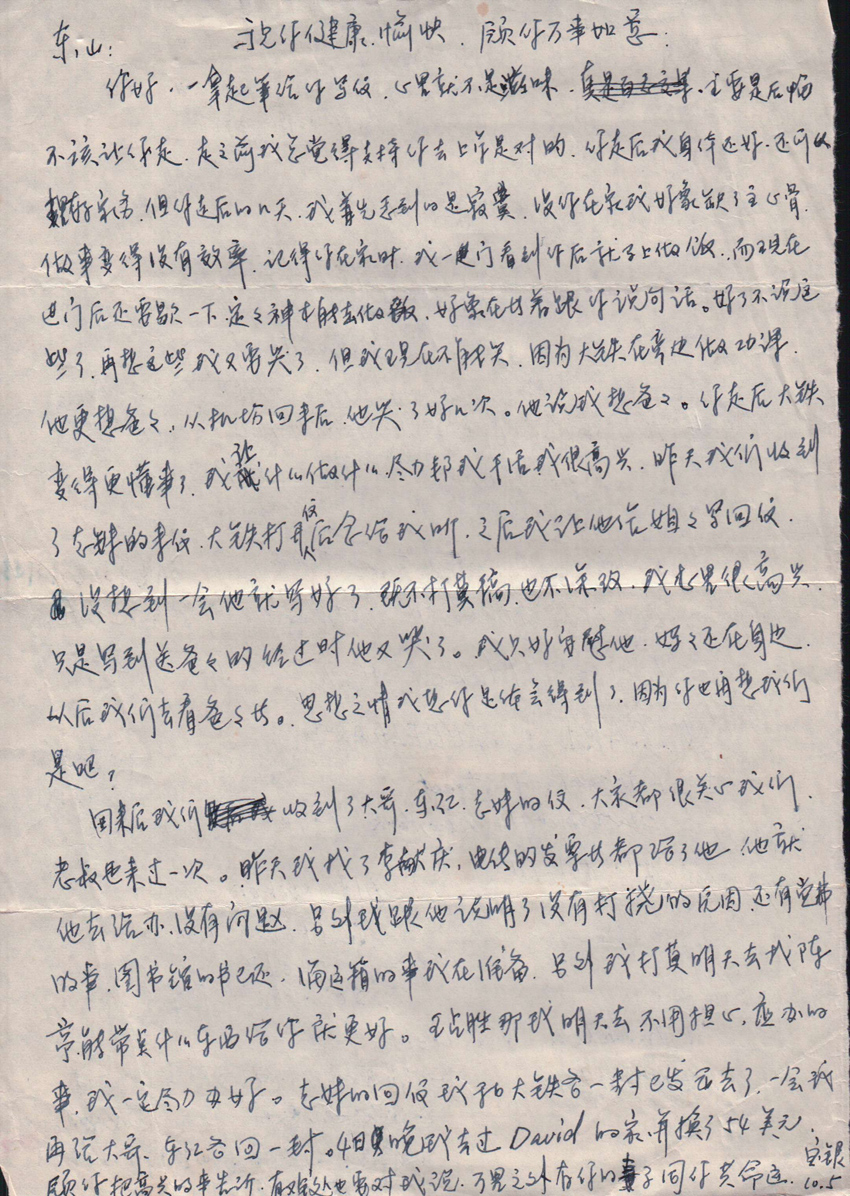 东山: 祝你健康、愉快、愿你万事如意.
你好, 一拿起笔给你写信, 心里就不是滋味. 主要是后悔
不该让你走, 走之前我总觉得支持你去工作是对的. 你走后我身体还好. 还可以
家务, 但你走后的几天, 我首先感到的是寂寞, 没你在家我好象缺了主心骨.
做事变得没有效率. 记得你在家时, 我一进门看到你后就马上做饭, 而现在
进门后还要歇一下, 定々神才能去做饭, 好象在等着跟你说句话。好了不说这
些了, 再想这些我又要哭了, 但我现在不能哭, 因为大铁在旁边做功课.
他更想爸々, 从机场回来后, 他哭了好几次。他说我想爸々。你走后大铁
变得更懂事了, 我让什么做什么, 尽力帮我干活我很高兴. 昨天我们收到
了志妹的来信, 大铁打开信后念给我听, 之后我让他给姐々写回信.
没想到一会他就写好了, 既不打草稿, 也不涂改, 我心里很高兴.
只是写到送爸々的经过时他又哭了。我只好安慰他, 妈々还在身边.
以后我们去看爸々去。思想之情我想你是体会得到了, 因为你也再想我们
是吧?
回来后我们收到了大哥、东江、志妹的信, 大家都很关心我们.
老叔也来过一次。昨天我找了李献庆, 电传的发票等都给了他, 他说
他去给办, 没有问题. 另外我跟他说明了没有打扰的原因, 还有
的事, 图书馆的书已还, 海运箱的事我在准备. 另外我打算明天去找陈
能带点什么东西给你就更好。王占胜那我明天去不用担心, 应办的
事, 我一定尽力办好。志妹的回信我和大铁各一封已发出去了, 一会我
再给大哥、东江各回一封。4日晚我去过David的家, 并换了54美元.
愿你把高兴的事告诉, 有难处也要对我说, 万里之外有你的妻子同你共命运. 宝银
10.5